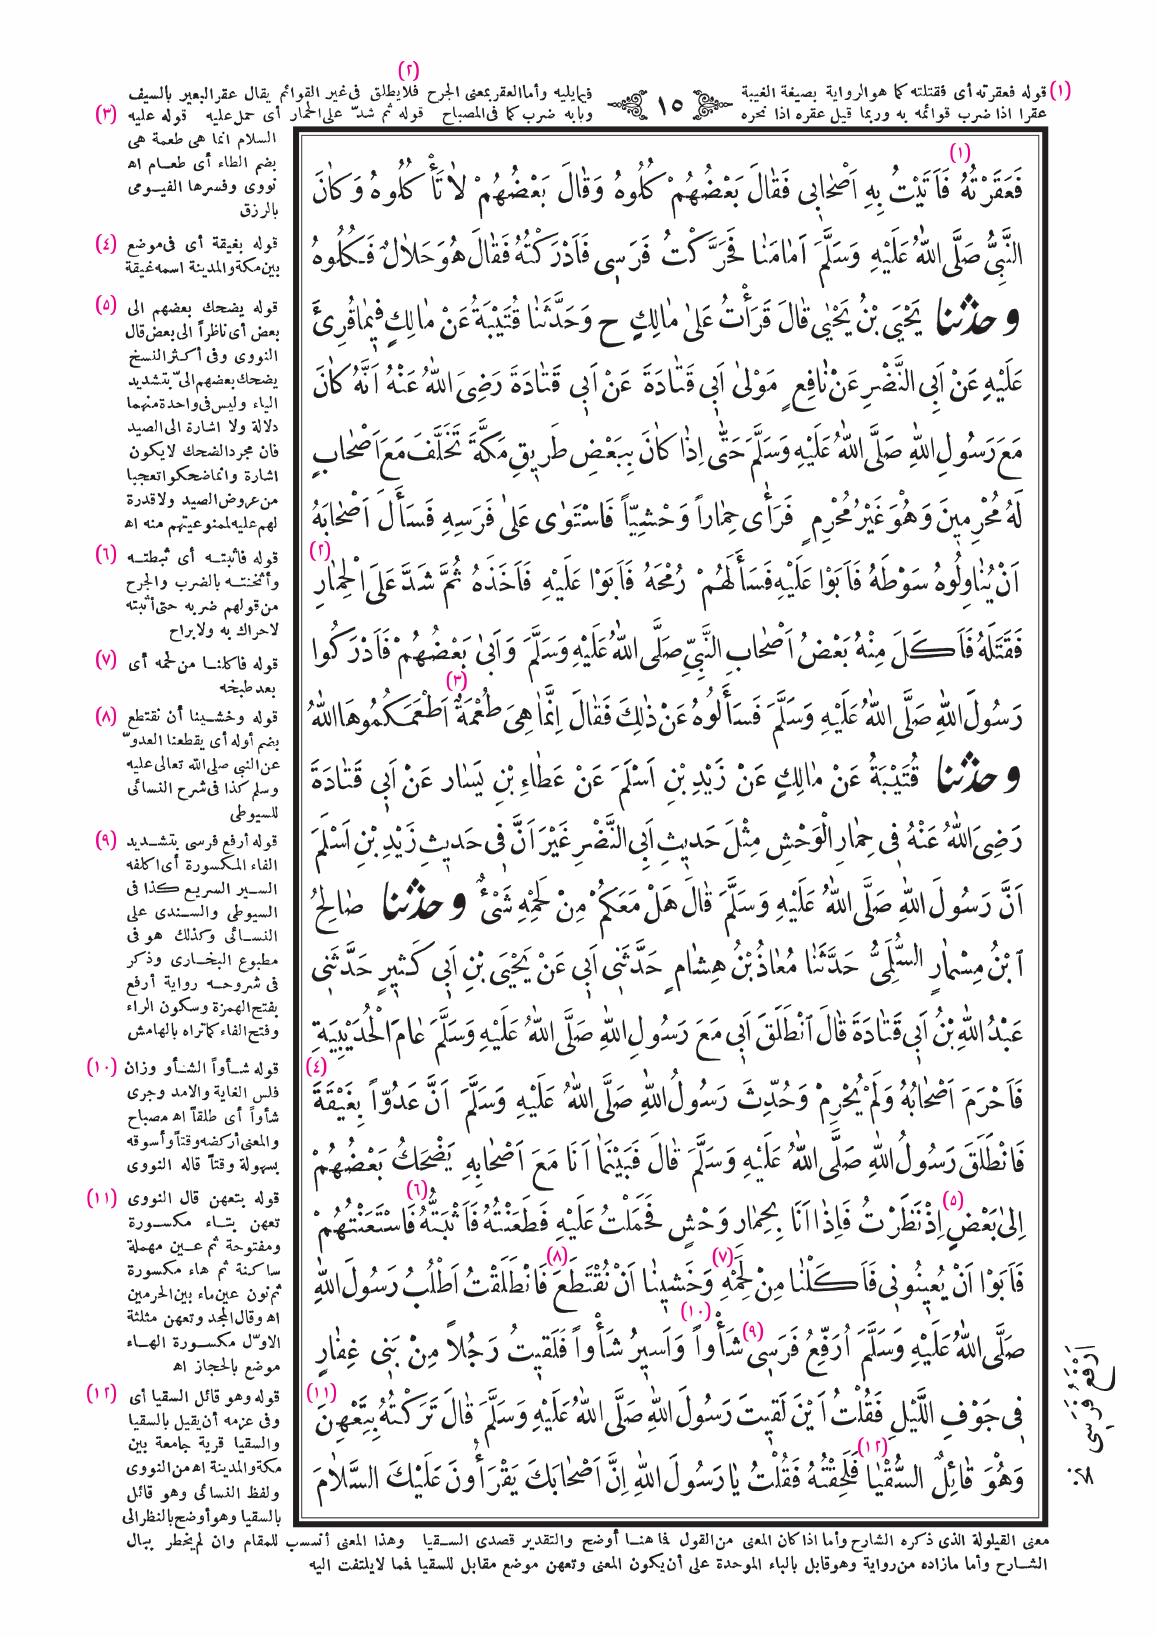 (١) قوله فعقرته أى فقتلته كما هو الرواية بصيغة الغيبة
عقرا اذا ضرب قوائمه به وربما قيل عقره اذا نحره
١٥
(٢)
فيمايليه وأما العقر بمعنى الجرح فلايطلق فى غير القوائم يقال عقر البعير بالسيف
وبابه ضرب كما فى المصباح قوله ثم شدّ على الحمار أى حمل عليه
(١)
فَعَقَرْتُهُ فَاَتَيْتُ بِهِ اَصْحَابِى فَقَالَ بَعْضُهُمْ كُلُوهُ وَقَالَ بَعْضُهُمْ لاٰ تَأْكُلُوهُ وَكَانَ
النَّبِىُّ صَلَّى اللّٰهُ عَلَيْهِ وَسَلَّمَ اَمَامَنَا فَحَرَّكْتُ فَرَسِى فَاَدْرَكْتُهُ فَقَالَ هُوَ حَلاٰلٌ فَكُلُوهُ
وحدثنا يَحْيَى بْنُ يَحْيٰى قَالَ قَرَأْتُ عَلىٰ مٰالِكٍ ح وَحَدَّثَنٰا قُتَيْبَةُ عَنْ مٰالِكٍ فِيمٰا قُرِئَ
عَلَيْهِ عَنْ اَبِى النَّضْرِ عَنْ نٰافِعٍ مَوْلىٰ اَبِى قَتٰادَةَ عَنْ اَبِى قَتٰادَةَ رَضِىَ اللّٰهُ عَنْهُ اَنَّهُ كَانَ
مَعَ رَسُولِ اللّٰهِ صَلَّى اللّٰهُ عَلَيْهِ وَسَلَّمَ حَتّٰى اِذٰا كَانَ بِبَعْضِ طَرِيقِ مَكَّةَ تَخَلَّفَ مَعَ اَصْحٰابٍ
لَهُ مُحْرِمِينَ وَهُوَ غَيْرُ مُحْرِمٍ فَرَأٰى حِمٰاراً وَحْشِيّاً فَاسْتَوٰى عَلىٰ فَرَسِهِ فَسَأَلَ اَصْحٰابَهُ
(٢)
اَنْ يُنٰاوِلُوهُ سَوْطَهُ فَاَبَوْا عَلَيْهِ فَسَأَلَهُمْ رُمْحَهُ فَاَبَوْا عَلَيْهِ فَاَخَذَهُ ثُمَّ شَدَّ عَلَى الْحِمٰارِ
فَقَتَلَهُ فَاَكَلَ مِنْهُ بَعْضُ اَصْحٰابِ النَّبِىِّ صَلَّى اللّٰهُ عَلَيْهِ وَسَلَّمَ وَاَبىٰ بَعْضُهُمْ فَاَدْرَكُوا
(٣)
رَسُولَ اللّٰهِ صَلَّى اللّٰهُ عَلَيْهِ وَسَلَّمَ فَسَأَلُوهُ عَنْ ذٰلِكَ فَقٰالَ اِنَّمٰا هِىَ طُعْمَةٌ اَطْعَمَكُمُوهَا اللّٰهُ
وحدثنا قُتَيْبَةُ عَنْ مٰالِكٍ عَنْ زَيْدِ بْنِ اَسْلَمَ عَنْ عَطٰاءِ بْنِ يَسَارٍ عَنْ اَبِى قَتٰادَةَ
رَضِىَ اللّٰهُ عَنْهُ فِى حِمٰارِ الْوَحْشِ مِثْلَ حَدِيثِ اَبِى النَّضْرِ غَيْرَ اَنَّ فِى حَدِيثِ زَيْدِ بْنِ اَسْلَمَ
اَنَّ رَسُولَ اللّٰهِ صَلَّى اللّٰهُ عَلَيْهِ وَسَلَّمَ قٰالَ هَلْ مَعَكُمْ مِنْ لَحْمِهِ شَىْءٌ وحدثنا صٰالِحُ
ابْنُ مِسْمٰارٍ السُّلَمِىُّ حَدَّثَنٰا مُعٰاذُ بْنُ هِشٰامٍ حَدَّثَنِى اَبِى عَنْ يَحْيَى بْنِ اَبِى كَثِيرٍ حَدَّثَنِى
عَبْدُ اللّٰهِ بْنُ اَبِى قَتٰادَةَ قٰالَ انْطَلَقَ اَبِى مَعَ رَسُولِ اللّٰهِ صَلَّى اللّٰهُ عَلَيْهِ وَسَلَّمَ عٰامَ الْحُدَيْبِيَةِ
(٤)
فَاَحْرَمَ اَصْحٰابُهُ وَلَمْ يُحْرِمْ وَحُدِّثَ رَسُولُ اللّٰهِ صَلَّى اللّٰهُ عَلَيْهِ وَسَلَّمَ اَنَّ عَدُوّاً بِغَيْقَةَ
فَانْطَلَقَ رَسُولُ اللّٰهِ صَلَّى اللّٰهُ عَلَيْهِ وَسَلَّمَ قٰالَ فَبَيْنَمٰا اَنَا مَعَ اَصْحٰابِهِ يَضْحَكُ بَعْضُهُمْ
(٥) (٦)
اِلىٰ بَعْضٍ اِذْ نَظَرْتُ فَاِذٰا اَنَا بِحِمٰارِ وَحْشٍ فَحَمَلْتُ عَلَيْهِ فَطَعَنْتُهُ فَاَثْبَتُّهُ فَاسْتَعَنْتُهُمْ
(٧) (٨)
فَاَبَوْا اَنْ يُعِينُونِى فَاَكَلْنٰا مِنْ لَحْمِهِ وَخَشِينٰا اَنْ نُقْتَطَعَ فَانْطَلَقْتُ اَطْلُبُ رَسُولَ اللّٰهِ
(٩) (١٠)
صَلَّى اللّٰهُ عَلَيْهِ وَسَلَّمَ اُرَفِّعُ فَرَسِى شَأْواً وَاَسِيرُ شَأْواً فَلَقِيتُ رَجُلاً مِنْ بَنِى غِفٰارٍ
(١١)
فِى جَوْفِ اللَّيْلِ فَقُلْتُ اَيْنَ لَقِيتَ رَسُولَ اللّٰهِ صَلَّى اللّٰهُ عَلَيْهِ وَسَلَّمَ قٰالَ تَرَكْتُهُ بِتَعْهِنَ
(١٢)
وَهُوَ قٰائِلٌ السُّقْيٰا فَلَحِقْتُهُ فَقُلْتُ يٰا رَسُولَ اللّٰهِ اِنَّ اَصْحٰابَكَ يَقْرَأُونَ عَلَيْكَ السَّلاٰمَ
اَرْفَعُ فَرَسِى نخ
(٣) قوله عليه
السلام انما هى طعمة هى
بضم الطاء أى طعام اه
نووى وفسرها الفيومى
بالرزق
(٤) قوله بغيقة أى فى موضع
بين مكة والمدينة اسمه غيقة
(٥) قوله يضحك بعضهم الى
بعض أى ناظراً الى بعض قال
النووى وفى أكثر النسخ
يضحك بعضهم الىّ بتشديد
الياء وليس فى واحدة منهما
دلالة ولا اشارة الى الصيد
فان مجرد الضحك لا يكون
اشارة وانما ضحكوا تعجبا
من عروض الصيد ولا قدرة
لهم عليه لممنوعيتهم منه اه
(٦) قوله فأثبتـه أى ثبطتـه
وأثخنتـه بالضرب والجرح
من قولهم ضربه حتى أثبته
لا حراك به ولا براح
(٧) قوله فاكلنـا من لحمه أى
بعد طبخه
(٨) قوله وخشـينا أن نقتطع
بضم أوله أى يقطعنا العدوّ
عن النبى صلى الله تعالى عليه
وسلم كذا فى شرح النسائى
للسيوطى
(٩) قوله أرفع فرسى بتشـديد
الفاء المكسورة أى اكلفه
السـير السريع كذا فى
السيوطى والسـندى على
النسـائى وكذلك هو فى
مطبوع البخـارى وذكر
فى شروحـه رواية أرفع
بفتح الهمزة وسكون الراء
وفتح الفاء كما تراه بالهامش
(١٠) قوله شـأواً الشـأو وزان
فلس الغاية والامد وجرى
شأواً أى طلقاً اه مصباح
والمعنى أركضه وقتاً وأسوقه
بسهولة وقتاً قاله النووى
(١١) قوله بتعهن قال النووى
تعهن بتـاء مكسـورة
ومفتوحة ثم عـين مهملة
ساكنة ثم هاء مكسورة
ثم نون عين ماء بين الحرمين
اه وقال المجد وتعهن مثلثة
الاوّل مكسـورة الهـاء
موضع بالحجاز اه
(١٢) قوله وهو قائل السقيا أى
وفى عزمه أن يقيل بالسقيا
والسقيا قرية جامعة بين
مكة والمدينة اه من النووى
ولفظ النسائى وهو قائل
بالسقيا وهو أوضح بالنظر الى
معنى القيلولة الذى ذكره الشارح وأما اذا كان المعنى من القول فما هنـا أوضح والتقدير قصدى السـقيا وهذا المعنى أنسب للمقام وان لم يخطر ببال
الشـارح وأما مازاده من رواية وهو قابل بالباء الموحدة على أن يكون المعنى وتعهن موضع مقابل للسقيا فمما لا يلتفت اليه